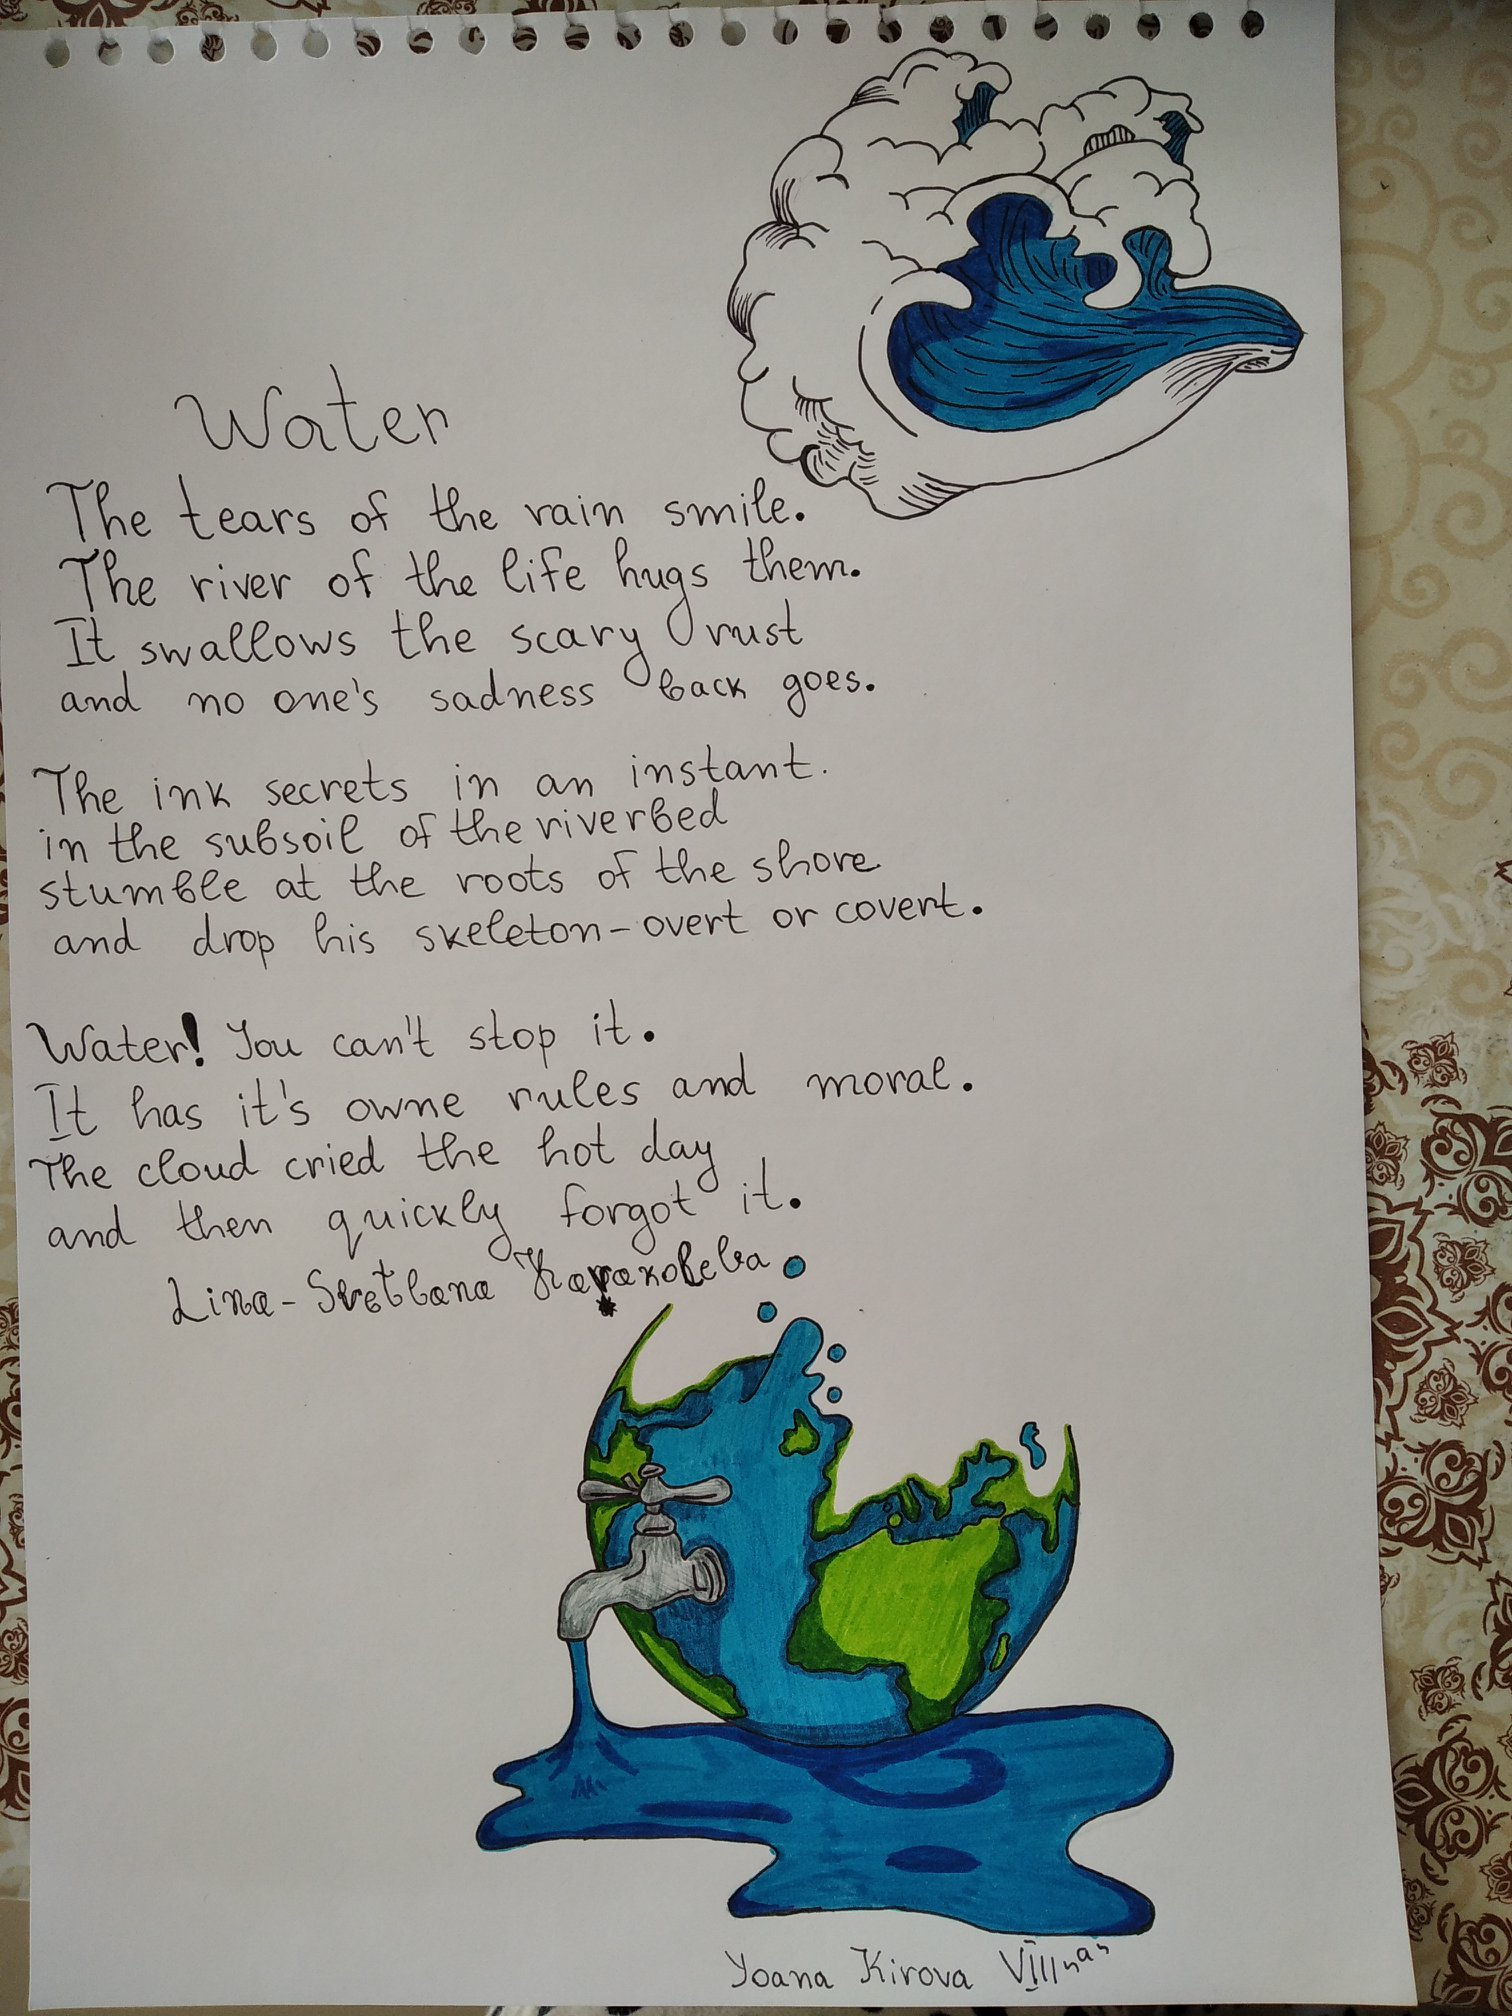 Water
The tears of the rain smile.
The river of the life hugs them.
It swallows the scary rust
and no one's sadness back goes.
The ink secrets in an instant.
in the subsoil of the riverbed
stumble at the roots of the shore
and drop his skeleton-overt or covert.
Water! You can't stop it.
It has it's owne rules and moral.
The cloud cried the hot day
and then quickly forgot it.
Lina-Svetlana
Yoana Kirova VIII